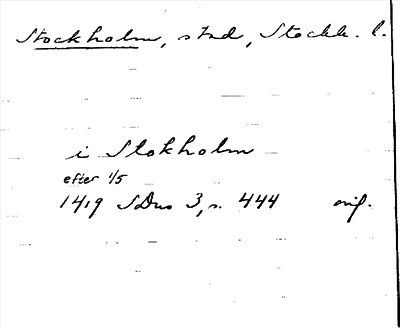 Stockholm, stad, Stockh. l.
i Stokholm
efter 1/5
1419 SDns 3, s. 444 orig.